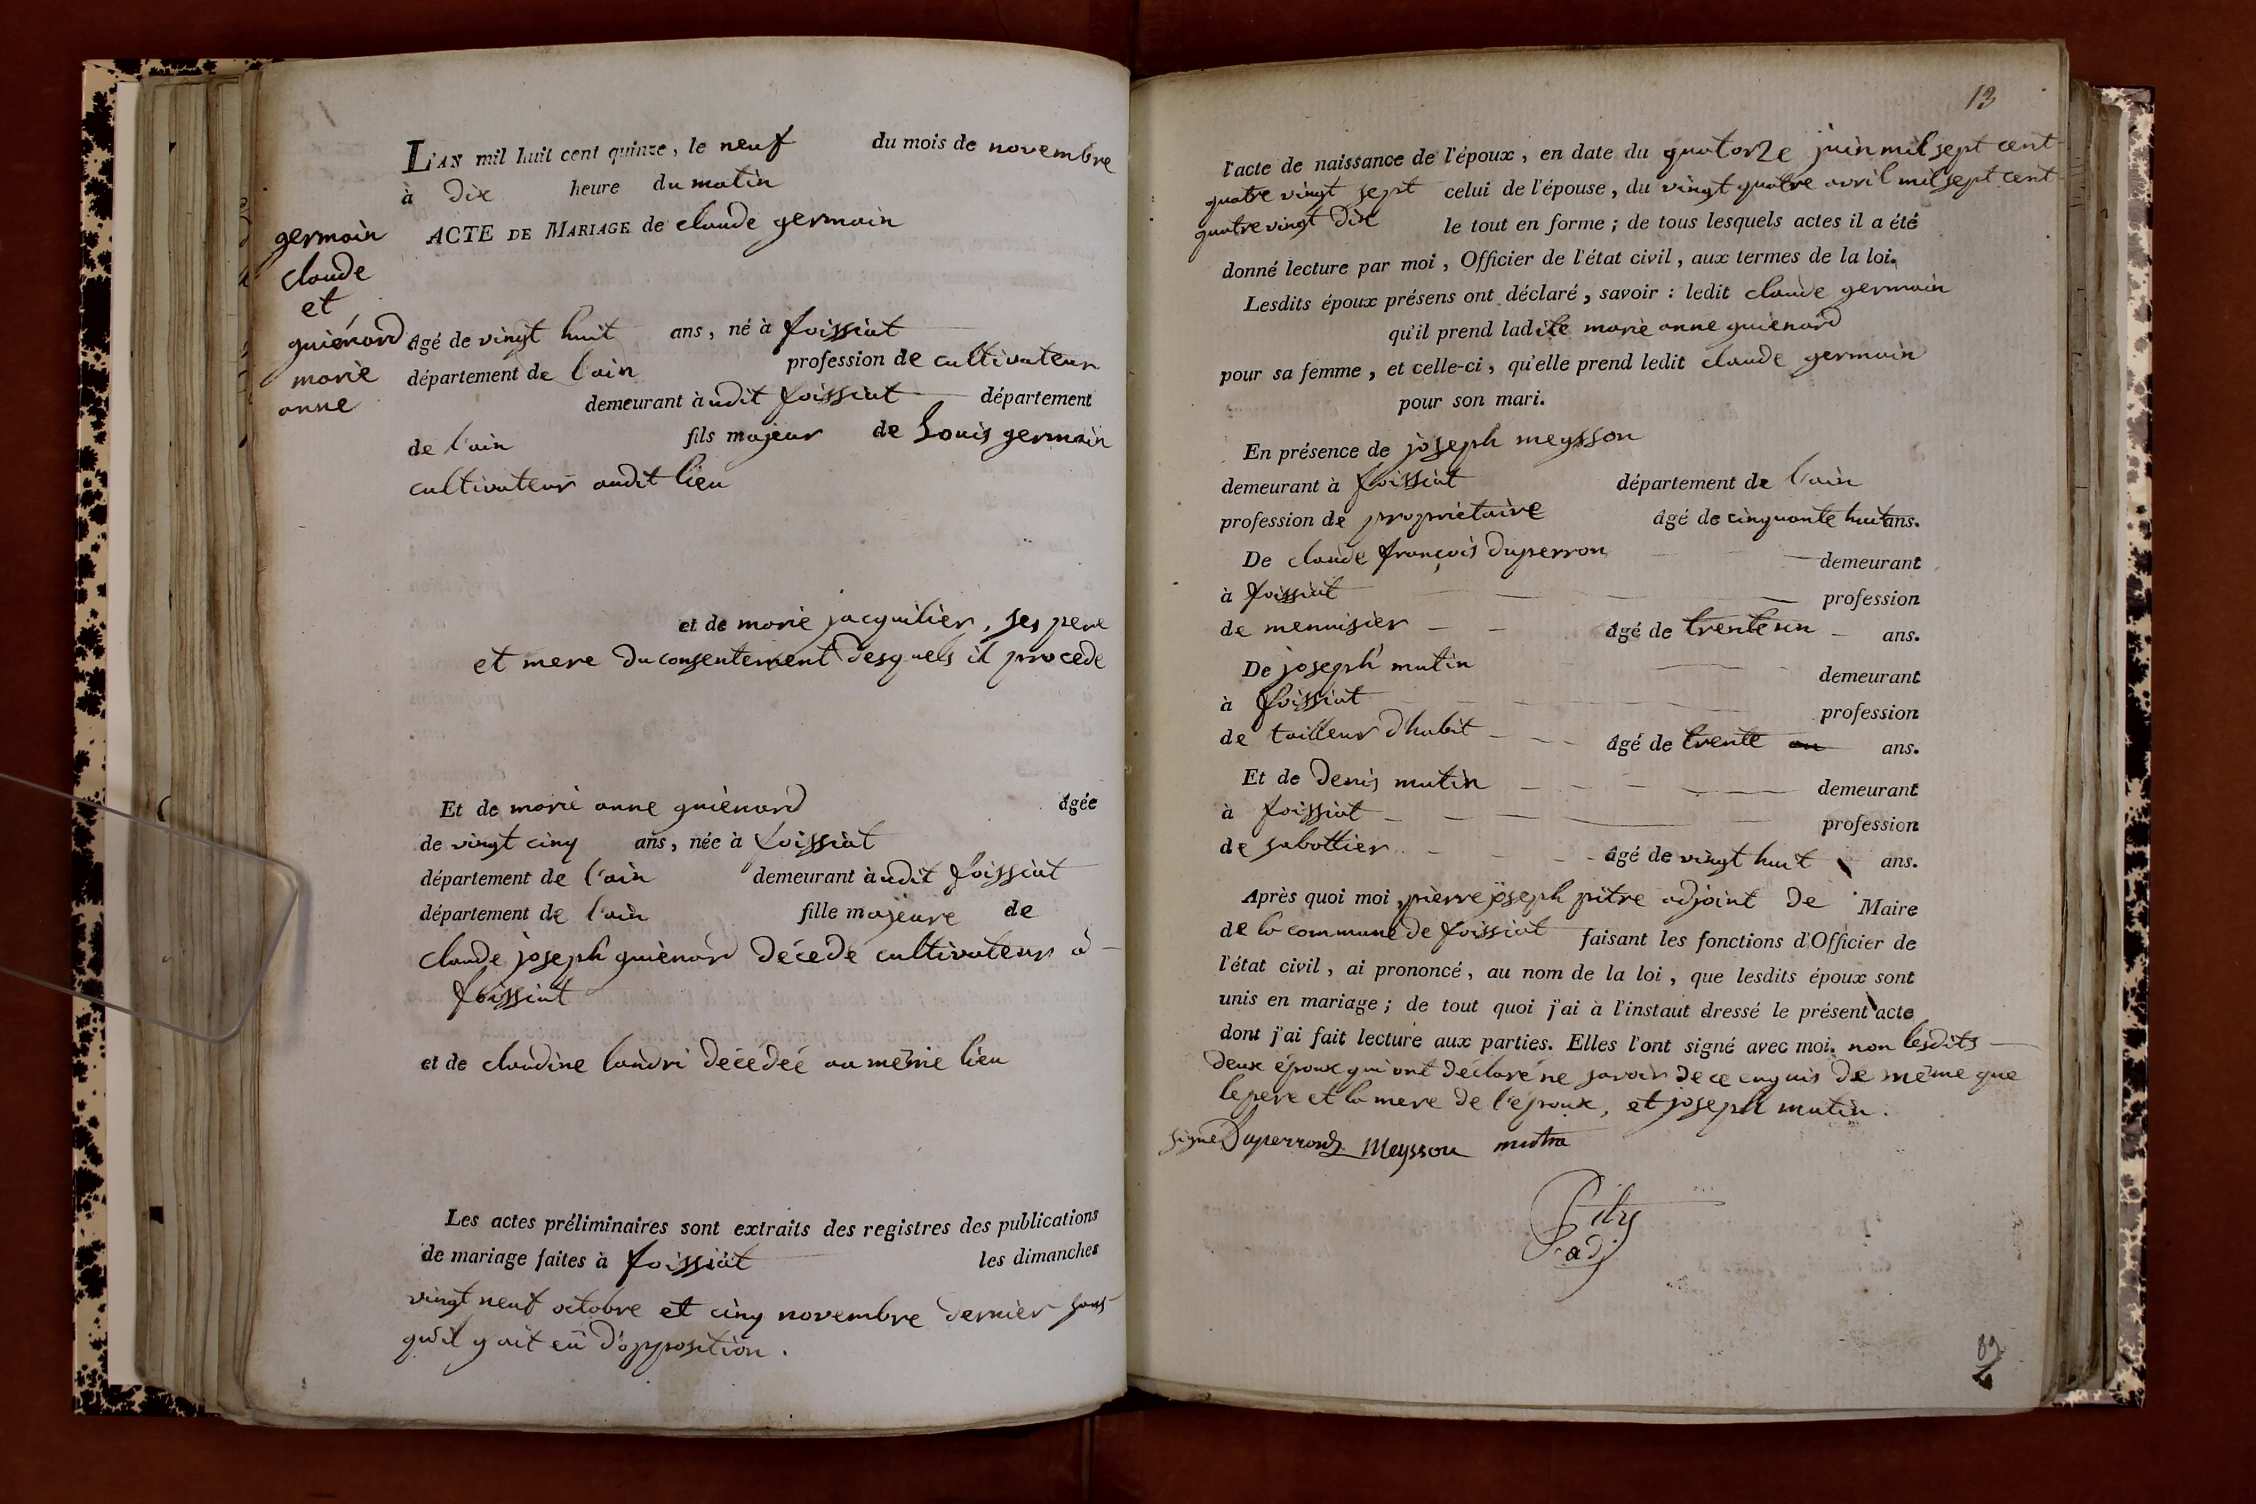 L'AN mil huit cent quinze, le neuf du mois de novembre
à Dix heure du matin
ACTE DE MARIAGE de claude germain
germain
claude
et
guiénard
marie
anne
âgé de vingt huit ans, né à foissiat
département de l'ain profession de cultivateur
demeurant àudit foissiat département
de l'ain fils majeur de Louis germain
cultivateur audit lieu
et de marie jacquilier, ses pere
et mere du consentement desquels il procede
Et de marie anne guiénard âgée
de vingt cinq ans, née à foissiat
département de l'ain demeurant àudit foissiat
département de l'ain fille majeure de
claude joseph guiénard décedé cultivateur à
foissiat
et de claudine landri décedée au même lieu
Les actes préliminaires sont extraits des registres des publications
de mariage faites à foissiat les dimanches
vingt neuf octobre et cinq novembre dernier sans
qu'il y ait eû d'opposition.
13
l'acte de naissance de l'époux, en date du quatorze juin mil sept cent
quatre vingt sept celui de l'épouse, du vingt quatre avril mil sept cent
quatre vingt Dix le tout en forme; de tous lesquels actes il a été
donné lecture par moi, Officier de l'état civil, aux termes de la loi.
Lesdits époux présens ont déclaré, savoir : ledit claude germain
qu'il prend ladite marie anne guiénard
pour sa femme, et celle-ci, qu'elle prend ledit claude germain
pour son mari.
En présence de joseph meysson
demeurant à foissiat département de l'ain
profession de propriétaire âgé de cinquante huit ans.
De claude françois duperron demeurant
à foissiat profession
de menuisier âgé de trente un ans.
De joseph mutin demeurant
à foissiat profession
de tailleur d'habit âgé de trente ans.
Et de Denis mutin demeurant
à foissiat profession
de sabottier âgé de vingt huit ans.
Après quoi moi, pierre joseph pitre adjoint de Maire
de la commune de foissiat faisant les fonctions d'Officier de
l'état civil, ai prononcé, au nom de la loi, que lesdits époux sont
unis en mariage; de tout quoi j'ai à l'instant dressé le présent acte
dont j'ai fait lecture aux parties. Elles l'ont signé avec moi. non lesdits
deux époux qui ont déclaré ne savoir de ce enquis de même que
le pere et la mere de l'époux, et joseph mutin.
signé Duperrond Meysson
Pitre
adj